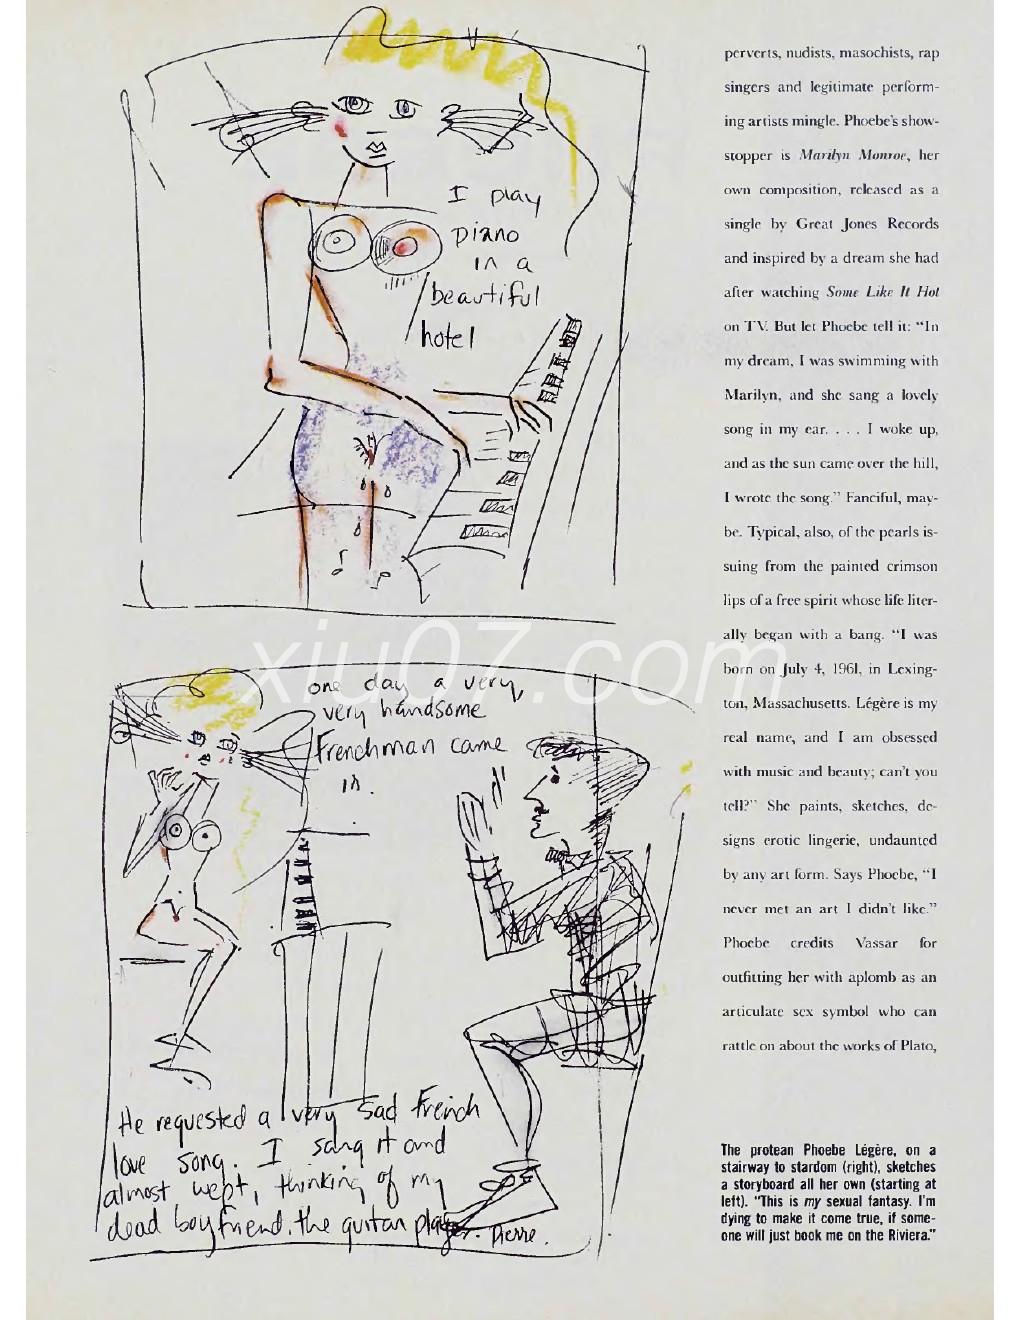 I play
piano
in a
beautiful
hotel
one day a very,
very handsome
Frenchman came
in.
He requested a very sad French
love song. I sang it and
almost wept, thinking of my
dead boyfriend, the guitar player. Pierre.
perverts, nudists, masochists, rap
singers and legitimate perform-
ing artists mingle. Phoebe's show-
stopper is Marilyn Monroe, her
own composition, released as a
single by Great Jones Records
and inspired by a dream she had
after watching Some Like It Hot
on TV. But let Phoebe tell it: "In
my dream, I was swimming with
Marilyn, and she sang a lovely
song in my ear. . . . I woke up,
and as the sun came over the hill,
I wrote the song." Fanciful, may-
be. Typical, also, of the pearls is-
suing from the painted crimson
lips of a free spirit whose life liter-
ally began with a bang. "I was
born on July 4, 1961, in Lexing-
ton, Massachusetts. Légère is my
real name, and I am obsessed
with music and beauty; can't you
tell?" She paints, sketches, de-
signs erotic lingerie, undaunted
by any art form. Says Phoebe, "I
never met an art I didn't like."
Phoebe credits Vassar for
outfitting her with aplomb as an
articulate sex symbol who can
rattle on about the works of Plato,
The protean Phoebe Légère, on a
stairway to stardom (right), sketches
a storyboard all her own (starting at
left). "This is my sexual fantasy. I'm
dying to make it come true, if some-
one will just book me on the Riviera."
xiu07.com